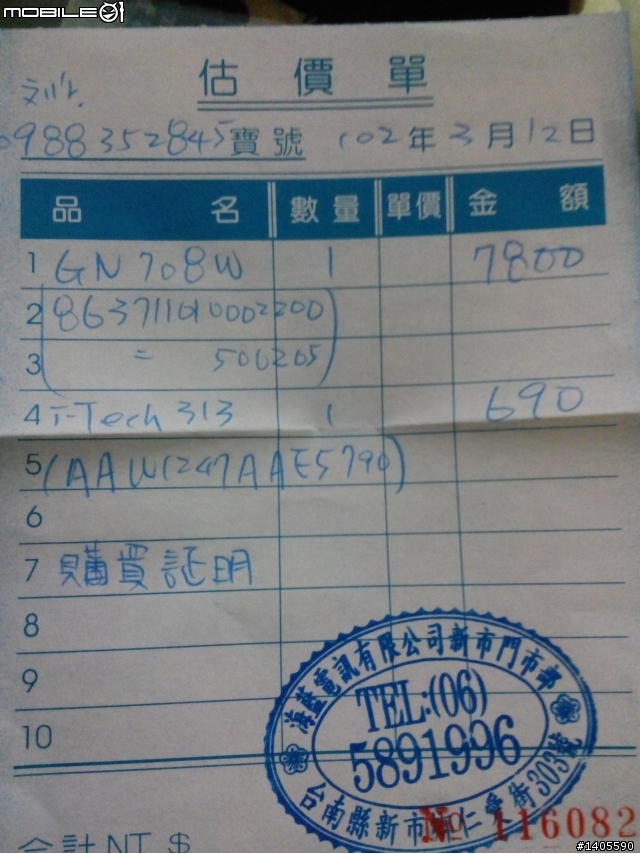 MOBILE01
估價單
0988352845寶號 102年3月12日
品名 數量 單價 金額
1 GN708W 1 7800
2 (863711010002200
3 = 506205)
4 i-Tech 313 1 690
5 (AAW1247AAE5790)
6
7 購買証明
8
9
10
海藍電訊有限公司新市門市部
TEL:(06)
5891996
台南縣新市鄉仁愛街303號
合計NT$
№ 116082
#1405590